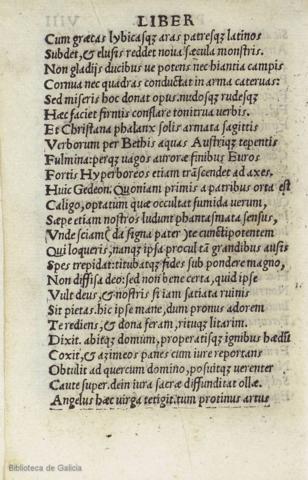 LIBER
Cum græcas lybicasqʒ aras patresqʒ latinos
Subdet, & elusis reddet noua sæcula monstris.
Non gladijs ducibus ue potens nec hiantia campis
Cornua nec quadras conductat in arma cateruas:
Sed miseris hoc donat opus. nudosqʒ rudesqʒ
Hæc faciet firmis conflare tonitrua verbis.
Et Christana phalanx solis armata sagittis
Verborum per Bethis aquas Austriqʒ tepentis
Fulmina: perqʒ vagos auroræ finibus Euros
Fortis Hyperboreos etiam trãscendet ad axes,
Huic Gedeon. Quoniam primis a patribus orta est
Caligo, optatum quæ occultat fumida verum,
Sæpe etiam nostros ludunt phantasmata sensus,
Vnde sciamʃ da signa pater ꝙte cunctipotentem
Qui loqueris, nanqʒ ipsa procul tã grandibus ausis
Spes trepidat: titubatqʒ fides sub pondere magno,
Non diffisa deo: sed non bene certa, quid ipse
Vult deus, & nostris si iam satiata ruinis
Sit pietas. hic ipse mane, dum pronus adorem
Te rediens, & dona feram, rituqʒ litarim.
Dixit. abitqʒ domum, properatisqʒ ignibus hædũ
Coxit, & azimeos panes cum iure reportans
Obtulit ad quercum domino, posuitqʒ verenter
Caute super. dein iura sacræ diffunditat ollæ.
Angelus hæc uirga tetigit. tum protinus artus
Biblioteca de Galicia